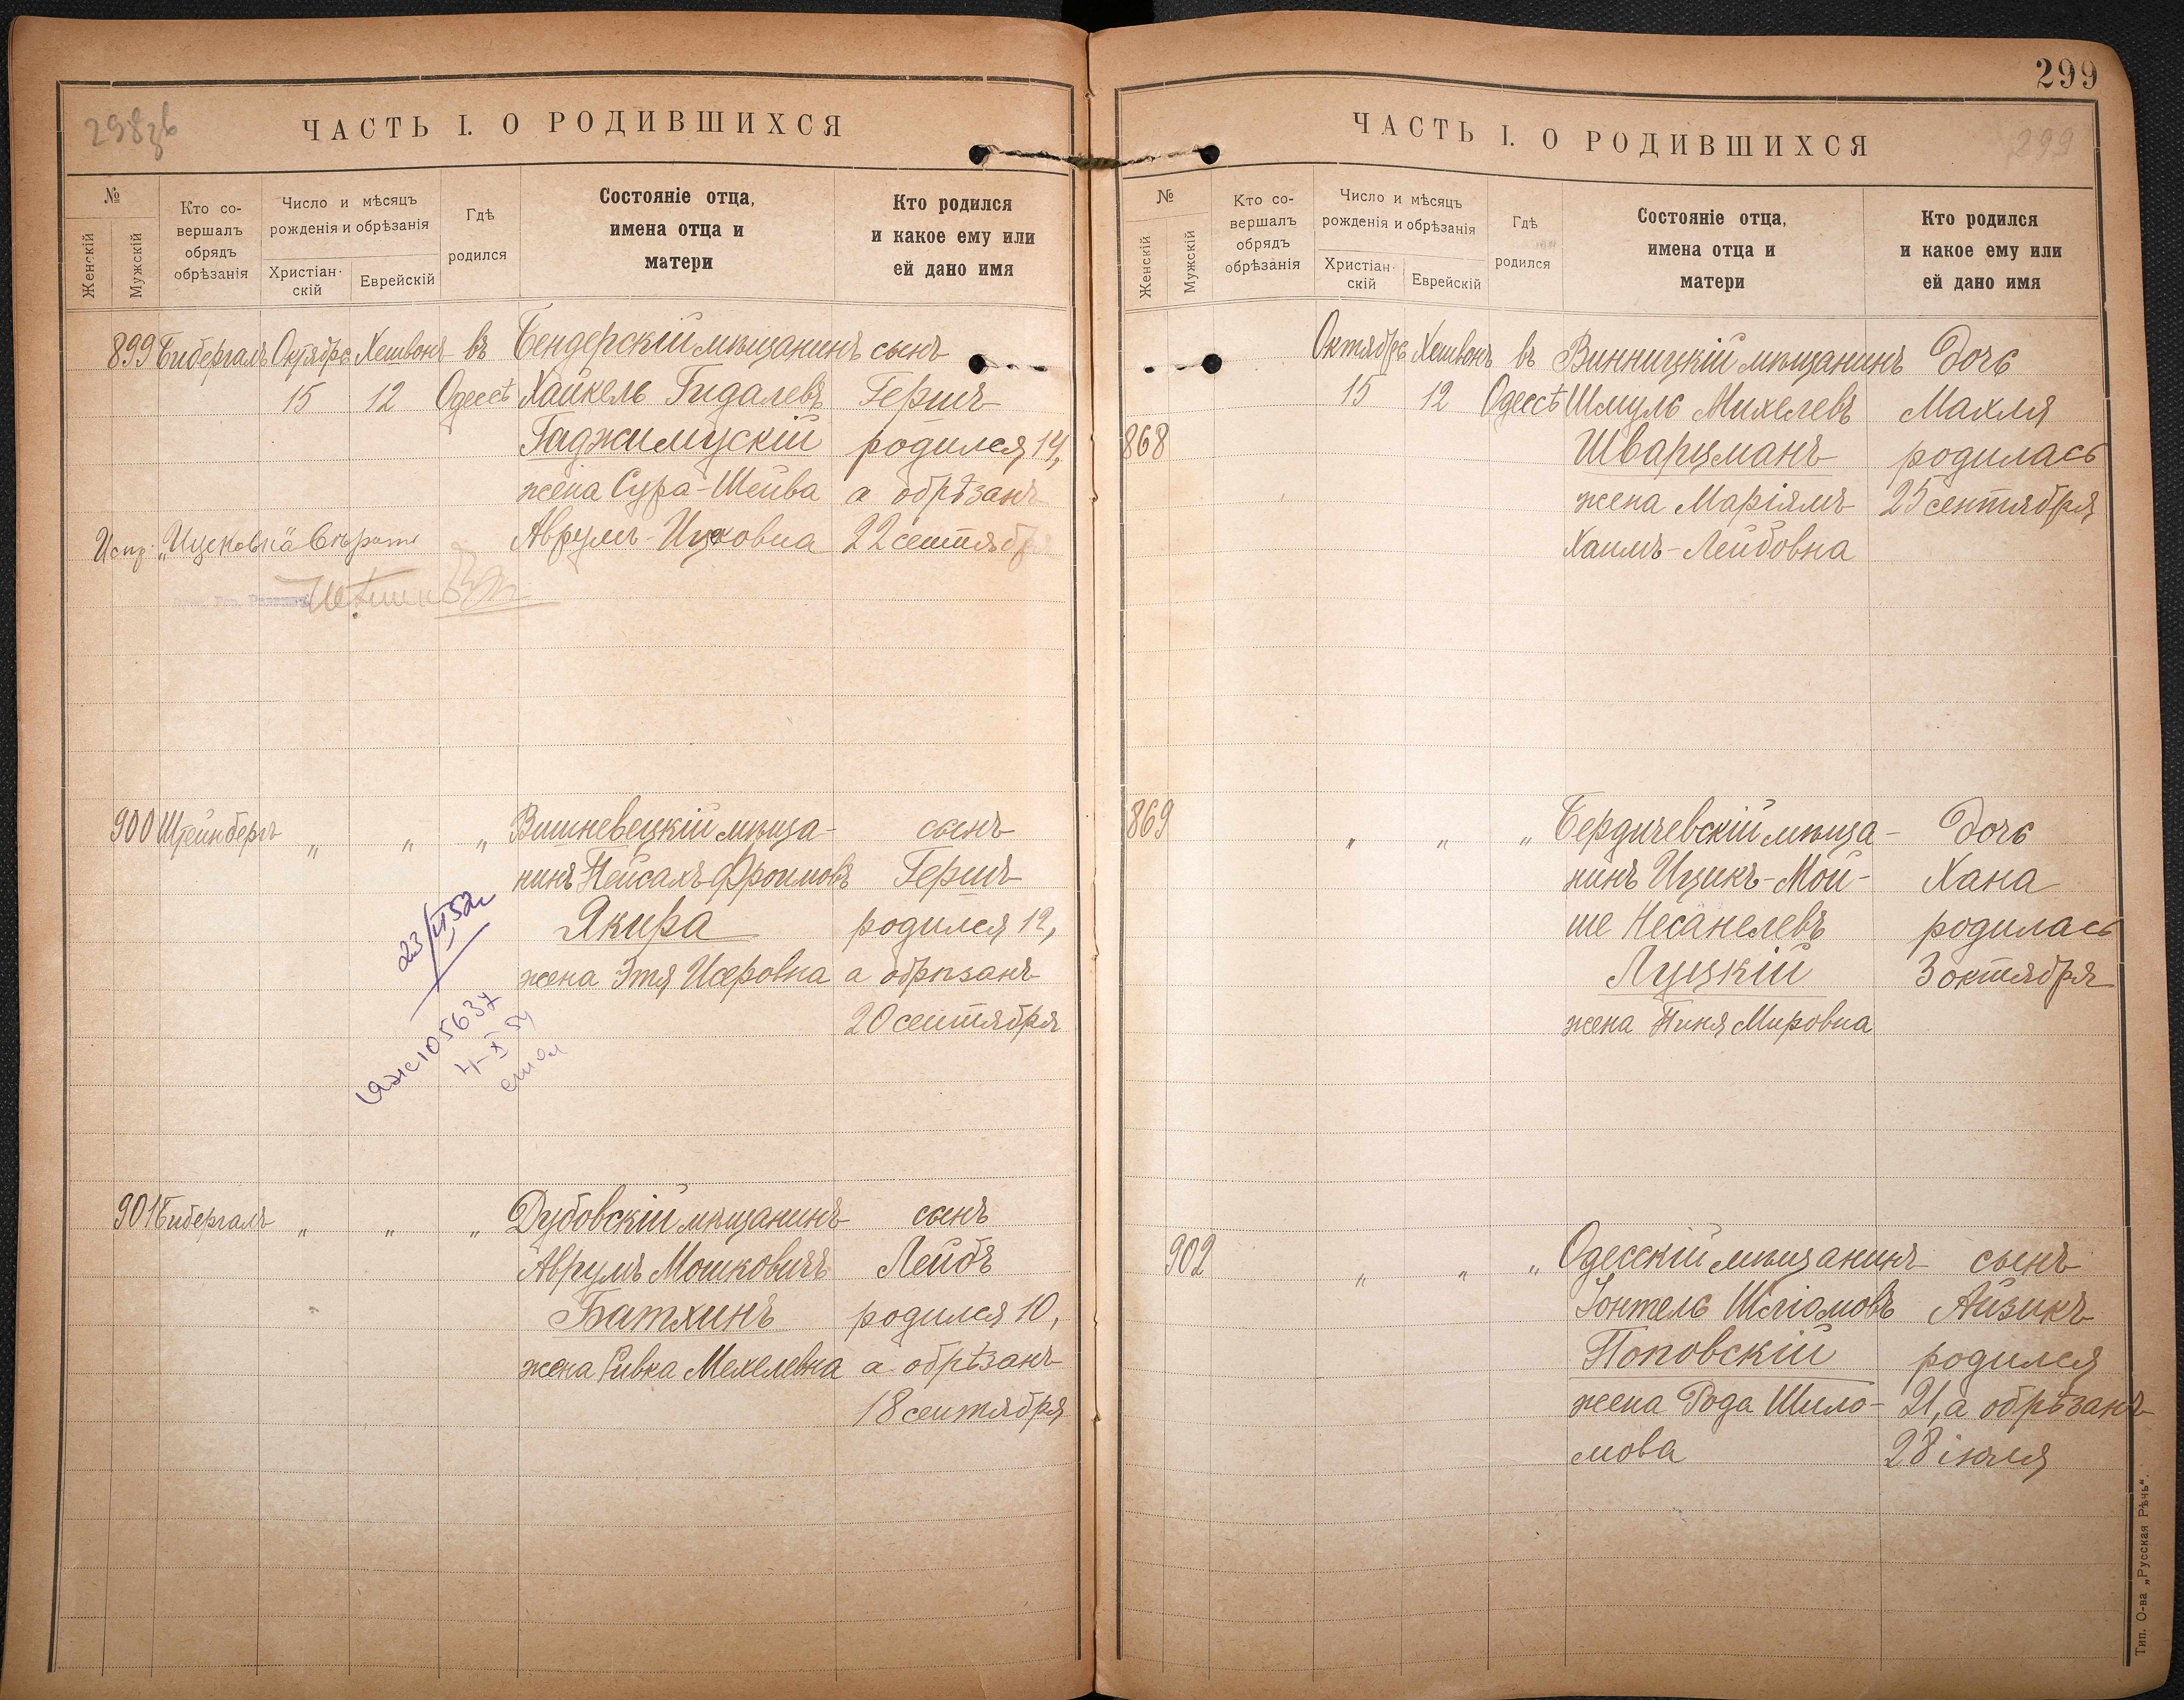 298зв
ЧАСТЬ I. О РОДИВШИХСЯ
№
Женскій
Мужскій
Кто со-
вершалъ
обрядъ
обрѣзанія
Число и мѣсяцъ
рожденія и обрѣзанія
Христіан-
скій
Еврейскій
Гдѣ
родился
Состояніе отца,
имена отца и
матери
Кто родился
и какое ему или
ей дано имя
899 Бибергалъ Октябрь Хешвонъ въ Бендерскій мѣщанинъ сынъ
15 12 Одессѣ Хайкель Гидалевъ Гершъ
Гаджимускій родился 14,
жена Сура-Шейва а обрѣзанъ
Аврумъ-Ицковна 22 сентября
Испр. „Ицковна“ вѣрить
900 Штейнбергъ „ „ „ Вишневецкій мѣща- сынъ
нинъ Пейсахъ Фроимовъ Гершъ
Якира родился 12,
жена Этя Исеровна а обрѣзанъ
20 сентября
23/II 52г
105637
4-X 54
901 Бибергалъ „ „ „ Дубовскій мѣщанинъ сынъ
Аврумъ Мошковичъ Лейбъ
Батхинъ родился 10,
жена Ривка Мехелевна а обрѣзанъ
18 сентября
299
ЧАСТЬ I. О РОДИВШИХСЯ
299
№
Женскій
Мужскій
Кто со-
вершалъ
обрядъ
обрѣзанія
Число и мѣсяцъ
рожденія и обрѣзанія
Христіан-
скій
Еврейскій
Гдѣ
родился
Состояніе отца,
имена отца и
матери
Кто родился
и какое ему или
ей дано имя
Октябрь Хешвонъ въ Винницкій мѣщанинъ дочь
15 12 Одессѣ Шмуль Михелевъ Махля
868 Шварцманъ родилась
жена Маріямъ 25 сентября
Хаимъ-Лейбовна
869 „ „ „ Бердичевскій мѣща- дочь
нинъ Ицикъ-Мой- Хана
ше Несанелевъ родилась
Луцкій 3 октября
жена Пиня Мировна
902 „ „ „ Одесскій мѣщанинъ сынъ
Іонтель Шліомовъ Айзикъ
Поповскій родился
жена Рода Шило- 21, а обрѣзанъ
мова 28 іюля
Тип. О-ва „Русская Рѣчь“.